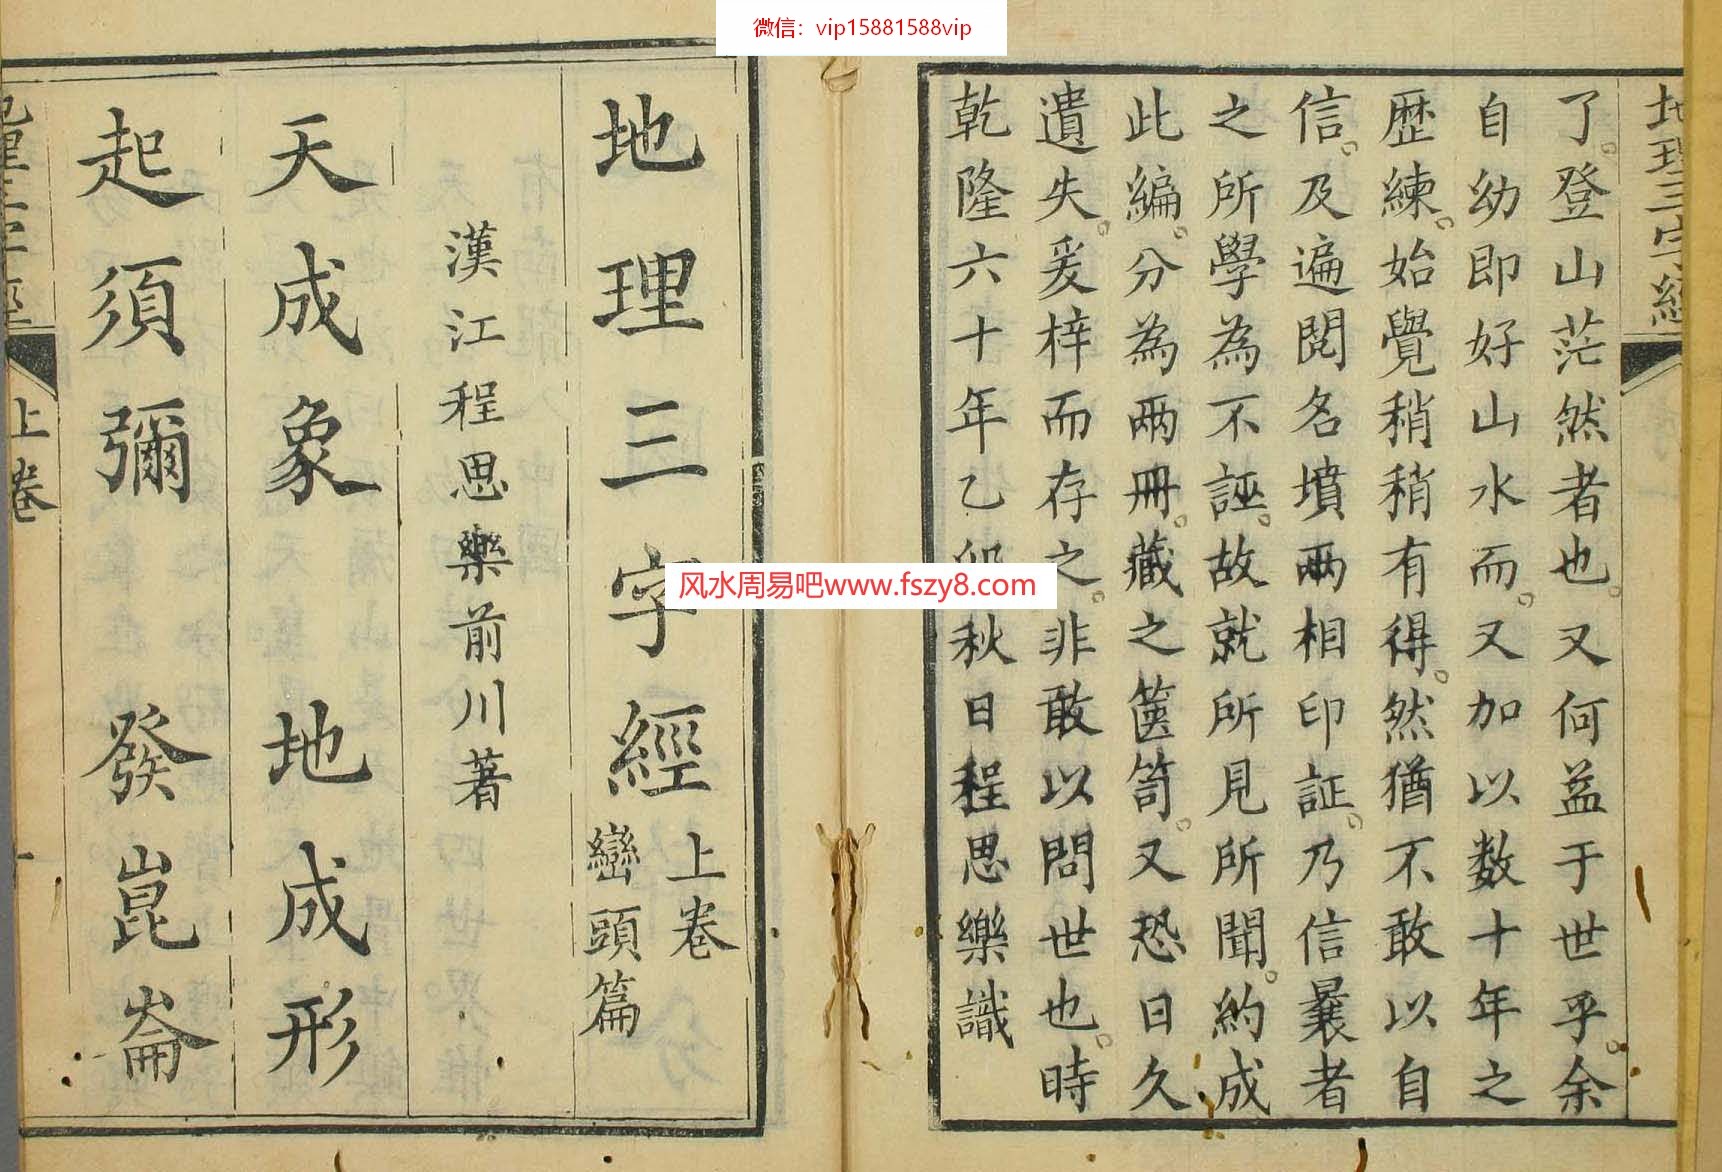 微信：vip15881588vip
地理三字經
了。登山茫然者也。又何益于世乎。余
自幼即好山水而。又加以数十年之
歴練。始覺稍稍有得。然猶不敢以自
信。及遍閱名墳兩相印証。乃信曩者
之所學為不誣。故就所見所聞。約成
此編。分為兩冊。藏之篋笥。又恐日久
遺失。爰梓而存之。非敢以問世也。時
乾隆六十年乙卯秋日程思樂識
风水周易吧www.fszy8.com
地理三字經 上卷 巒頭篇
漢江程思樂前川著
天成象 地成形
起須彌 發崑崙
地理三字經 上卷 一